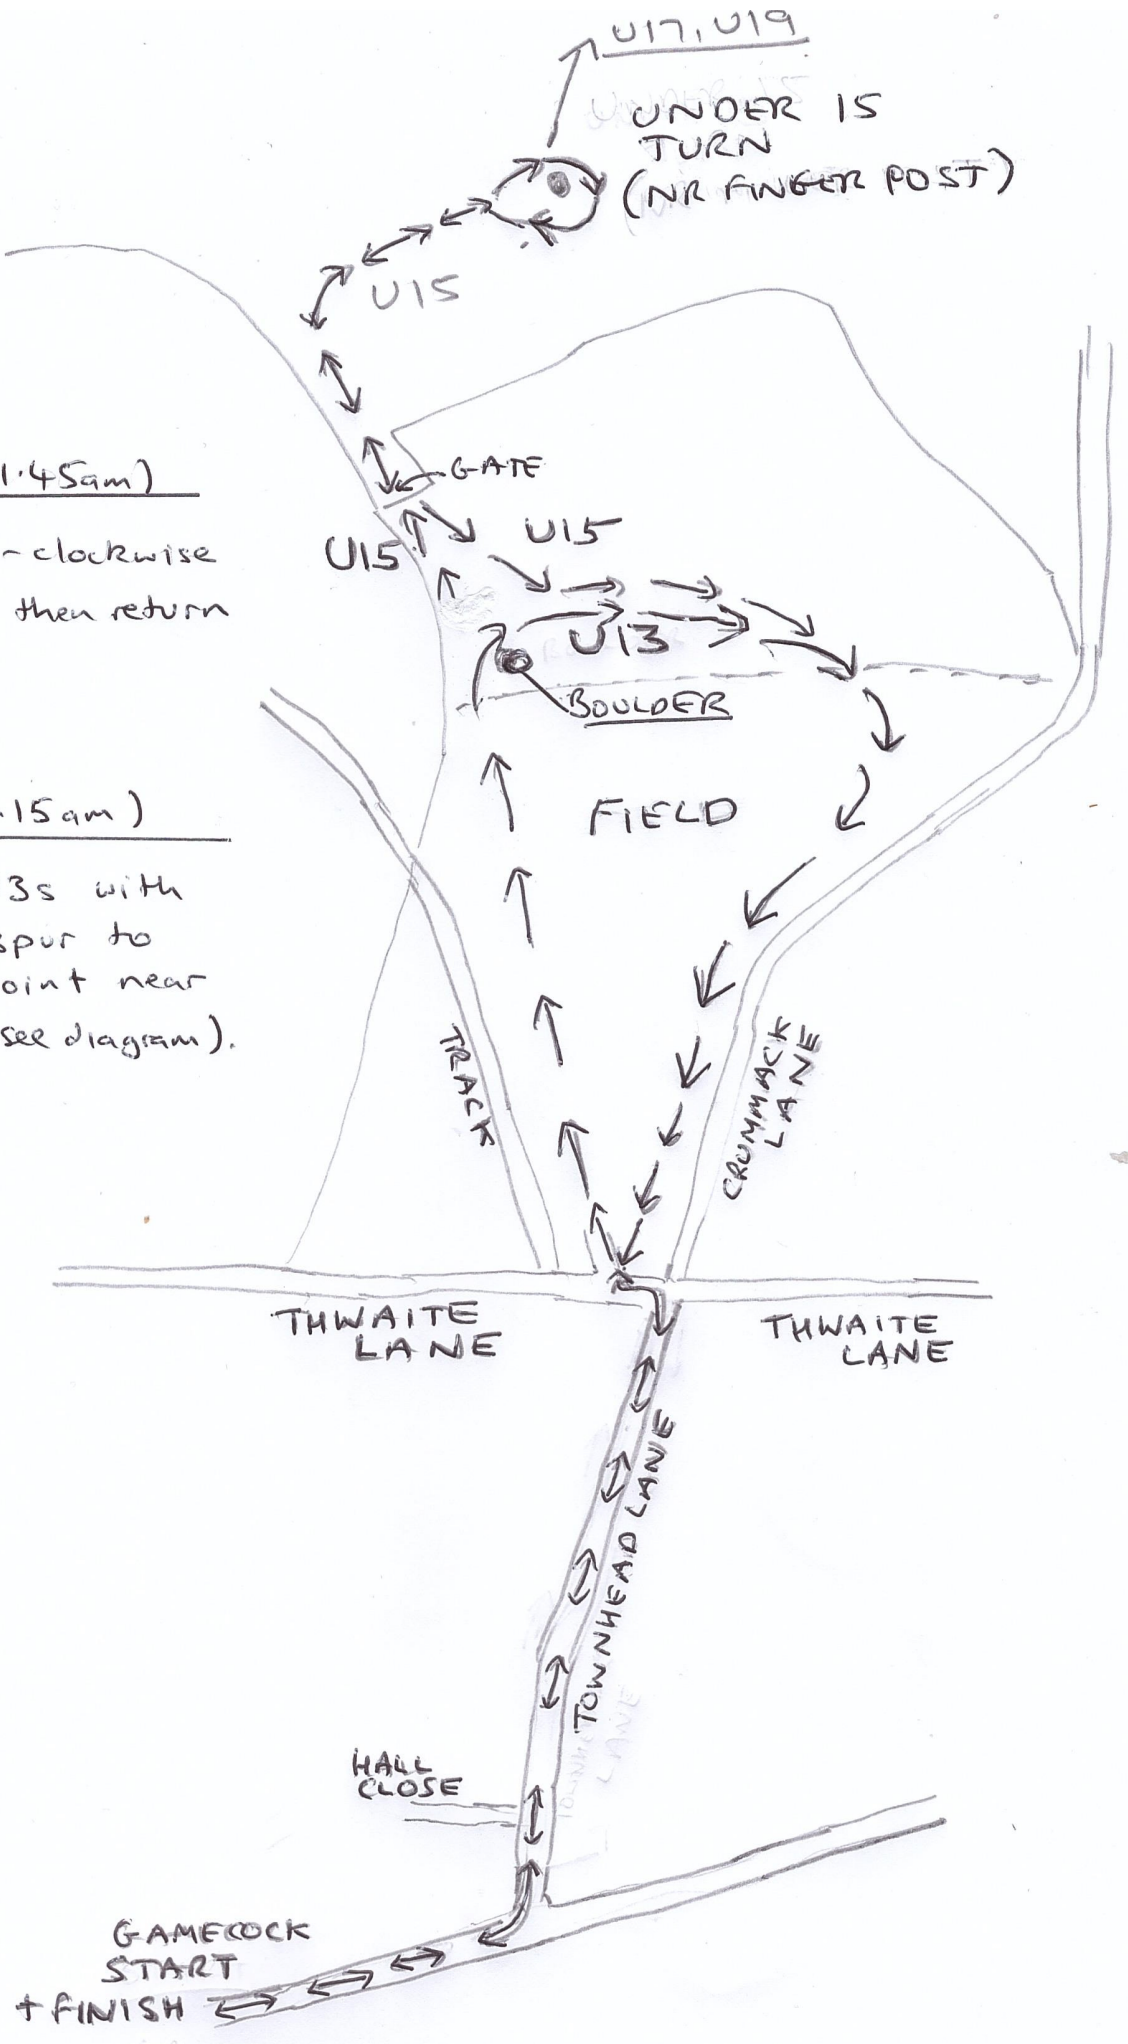 U17, U19
UNDER 15
TURN
(NR FINGER POST)
U15
GATE
1.45am)
U15
U15
-clockwise
then return
U13
BOULDER
.15am)
FIELD
3s with
spur to
oint near
see diagram).
TRACK
CRUMMACK
LANE
THWAITE
LANE
THWAITE
LANE
TOWNHEAD LANE
HALL
CLOSE
GAMECOCK
START
+ FINISH